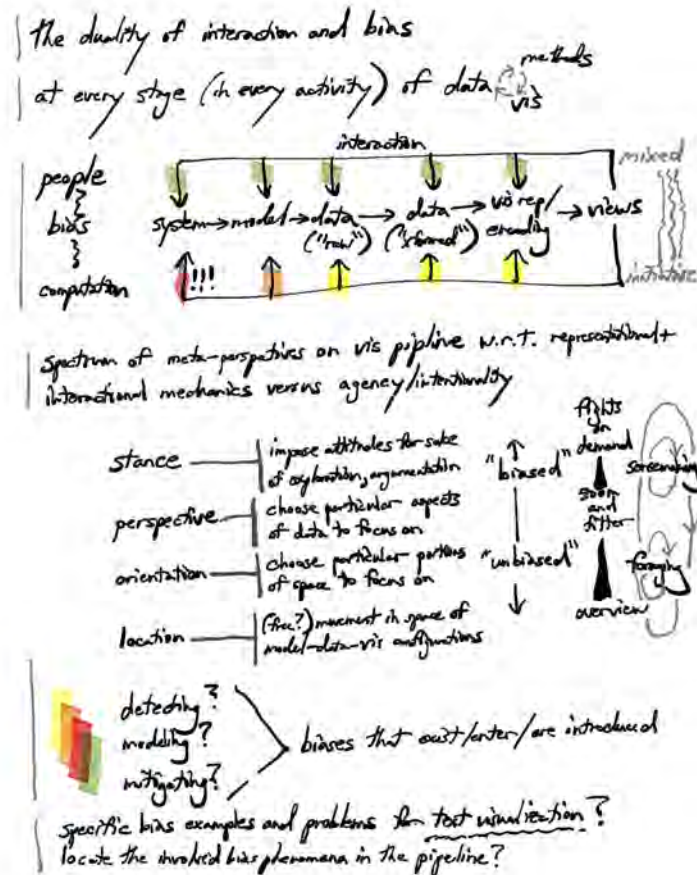 the duality of interaction and bias
at every stage (in every activity) of data
methods
vis
interaction
people
bias
computation
system → model → data → data → vis rep/ → views
("raw") ("xformed") encoding
!!!
mixed
initiative
spectrum of meta-perspatives on vis pipline w.r.t. representational +
interactional mechanics versus agency/intentionality
stance
impose attitudes for sake
of exploration, argumentation
perspective
choose particular aspects
of data to focus on
orientation
choose particular portions
of space to focus on
location
(free?) movement in space of
model-data-vis configurations
"biased"
"unbiased"
on
demand
zoom
and
filter
overview
sensemaking
foraging
detecting?
modeling?
mitigating?
biases that exist/enter/are introduced
specific bias examples and problems for text visualization?
locate the involved bias phenomena in the pipeline?